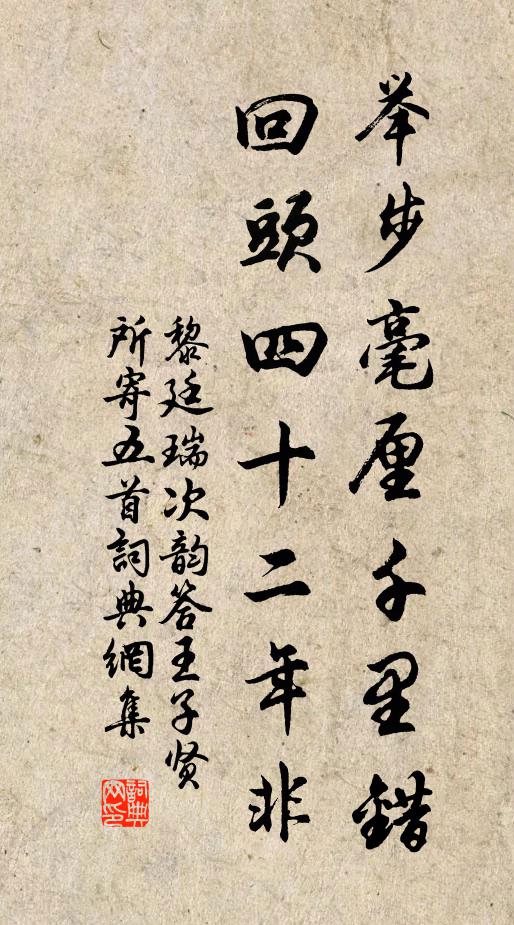 举步毫厘千里錯
回頭四十二年非
黎廷瑞次韵答王子贤
所寄五首詞典網集
詞典
网印